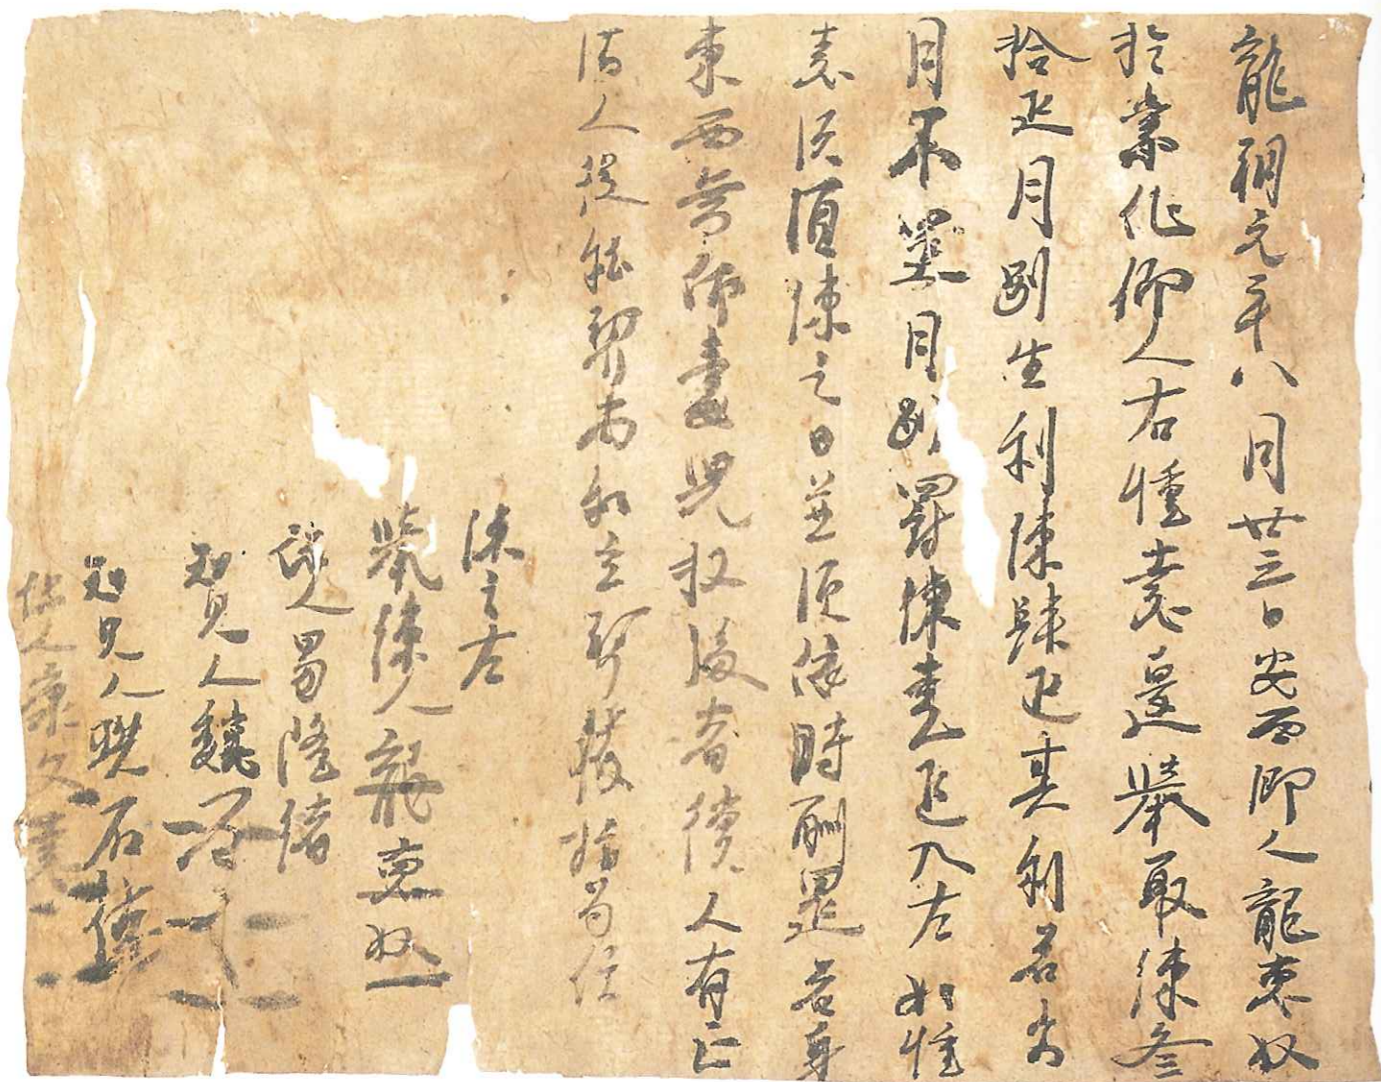 龍朔元年八月廿三日安西鄉人龍惠奴
於崇化鄉人右憧憙邊舉取練叁
拾疋月別生利練肆疋其利若出
月不還月別罰練壹疋入左如憧
憙須須練之日並須依時酬還若身
東西無仰妻兒收後者償人有正
法人從私契兩和立契獲指為信
練主左
舉練人龍惠奴
保人男隆緒
知見人魏石
知見人樊石德
保人康文憙